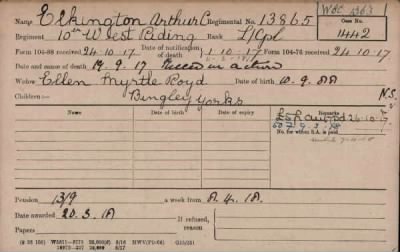 W5C 1363
Name Elkington Arthur C Regimental No. 13865 Case No.
Regiment 10th West Riding Rank L/Cpl 1442
Form 104-88 received 24.10.17 Date of notification of death 1.10.17 Form 104-76 received 24.10.17
Date and cause of death 19.9.17 Killed in action
Widow Ellen Myrtle Royd Date of birth 10.9.88 N.S.
Children:— Bingley Yorks
Names. Date of birth. Names. Date of birth.
No. for which S.A. is paid
Pension 13/9 a week from 8.4.18.
Date awarded 20.3.18 If refused, reason
Papers